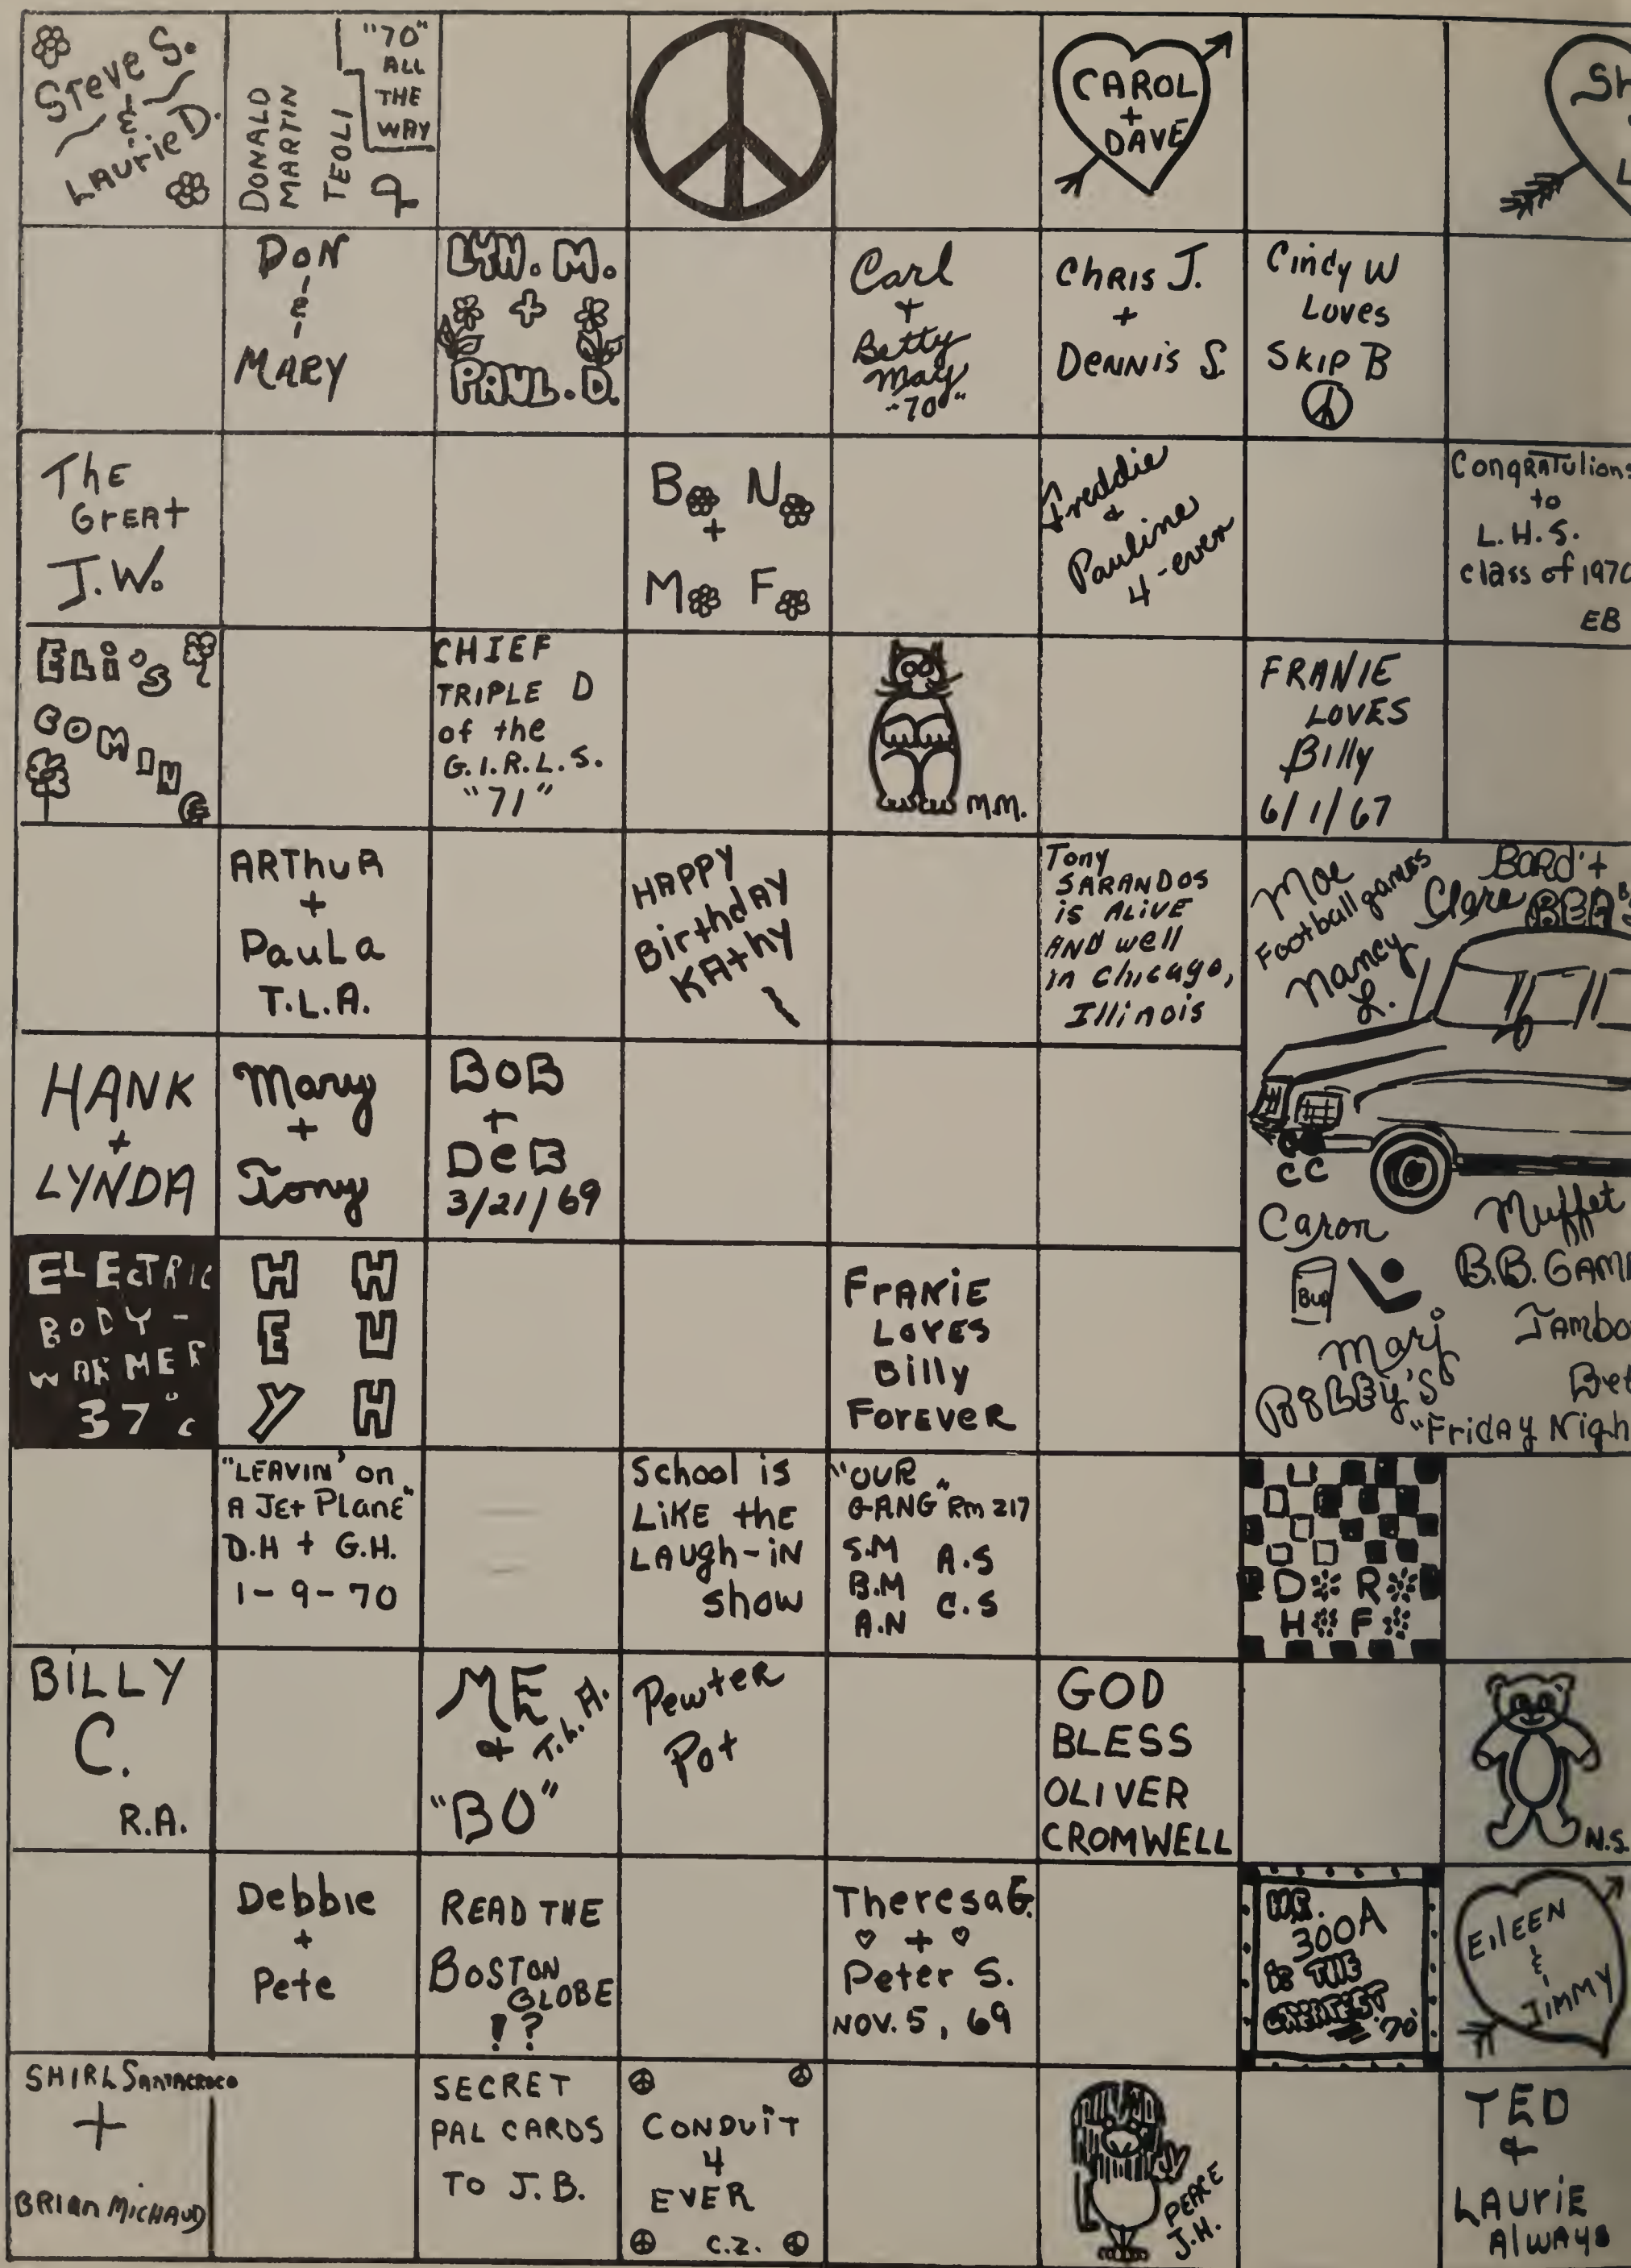 Steve S.
&
Laurie D.
DONALD
MARTIN
TEOLI
"70"
ALL
THE
WAY
CAROL
+
DAVE
Sh
L
DON
&
MARY
LYN. M.
+
PAUL. D.
Carl
+
Betty
May
"70"
CHRIS J.
+
DENNIS S.
Cindy W
Loves
SKIP B
The
GREAT
J.W.
B N
+
M F
Freddie
&
Pauline
4-ever
CONGRATulions
to
L.H.S.
class of 1970
EB
ELI'S
COMING
CHIEF
TRIPLE D
of the
G.I.R.L.S.
"71"
M.M.
FRANIE
LOVES
Billy
6/1/67
ARThuR
+
PauLa
T.L.A.
HAPPY
Birthday
KAthy
Tony
SARANDOS
is ALIVE
AND well
in chicago,
Illinois
Moe
Football games
Nancy
L.
BARD'+
Clare
HANK
+
LYNDA
Mary
+
Tony
BOB
+
DeB
3/21/69
CC
Caron
Muffet
B.B. GAM
Jambo
Be
Bud
Marj
"Friday Nigh
ELECTRIC
BODY-
WARMER
37°c
H H
E U
Y H
FRANIE
LOVES
Billy
FOREVER
"LEAVIN' on
A JEt PlanE"
D.H + G.H.
1-9-70
School is
LIKE the
LAUGh-iN
show
"OUR
GANG" Rm 217
S.M A.S
B.M C.S
A.N
D R
H F
BILLY
C.
R.A.
ME
&
T.L.A.
"BO"
Pewter
Pot
GOD
BLESS
OLIVER
CROMWELL
N.S.
Debbie
+
Pete
READ THE
BOSTON
GLOBE
!?
Theresa G.
+
Peter S.
NOV. 5, 69
MR.
300A
IS THE
GREATEST
'70
EilEEN
&
JIMMY
SHIRL SANTACROCO
+
BRIan MICHAUD
SECRET
PAL CARDS
TO J.B.
CONDUIT
4
EVER
C.Z.
PEACE
J.H.
TED
&
LAURIE
AlWAYS